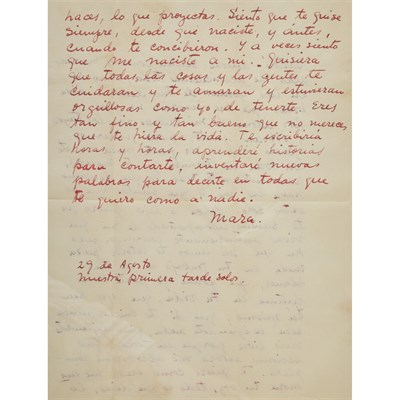 haces, lo que proyectas. Siento que te quise
siempre, desde que naciste, y antes,
cuando te concibieron. Y a veces siento
que me naciste a mi. Quisiera
que todas las cosas y las gentes te
cuidaran y te amaran y estuvieran
orgullosas como yo, de tenerte. Eres
tan fino y tan bueno que no mereces
que te hiera la vida. Te escribiría
horas y horas, aprenderé historias
para contarte, inventaré nuevas
palabras para decirte en todas que
te quiero como a nadie.
Mara.
29 de Agosto
nuestra primera tarde solos